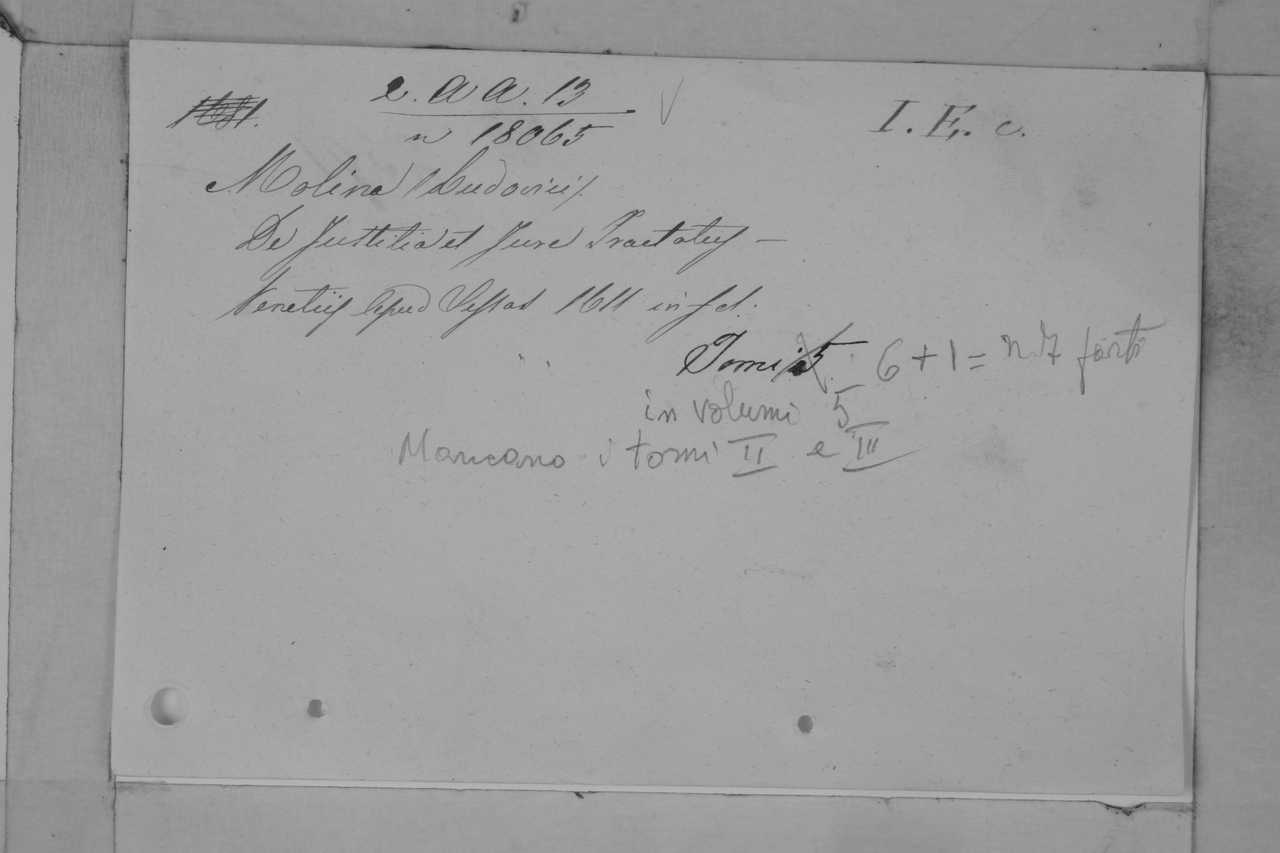 e. a a. 13 I. E. c.
n 18065
Molina (Ludovici)
De Justitia et Jure Tractatus —
Venetiis Apud Sessas 1611 in fol.
Tomi 5 6 + 1 = n. 7 parti
in volumi 5
Mancano i tomi II e III